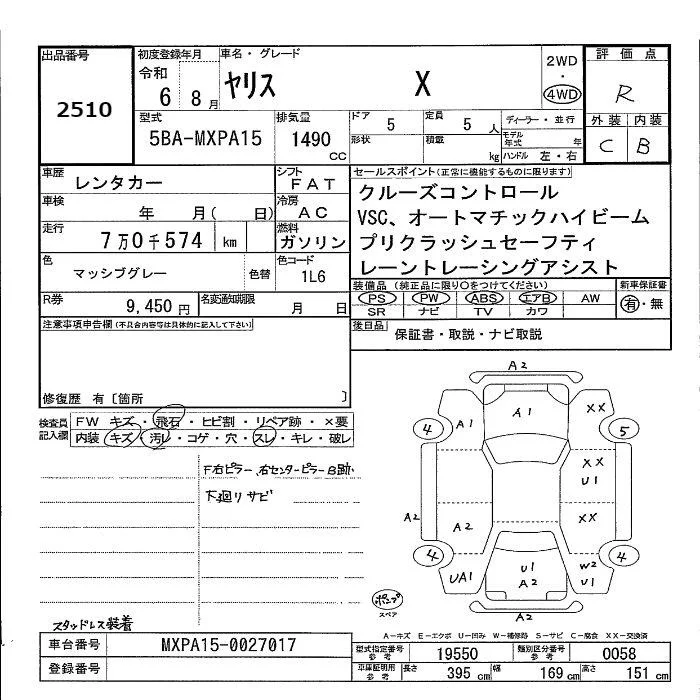 出品番号
2510
初度登録年月
令和
6 8月
車名・グレード
ヤリス X
2WD
・
4WD
評価点
R
外装 内装
C B
型式
5BA-MXPA15
排気量
1490
CC
ドア 5
定員 5人
形状
積載 kg
ディーラー・並行
モデル年式 年
ハンドル 左・右
車歴
レンタカー
シフト
FAT
車検
年 月(日)
冷房
AC
走行
7万0千574 km
燃料
ガソリン
色
マッシブグレー
色替
色コード
1L6
R券
9,450円
名変通知期限
月 日
セールスポイント(正常に機能するものに限ります)
クルーズコントロール
VSC、オートマチックハイビーム
プリクラッシュセーフティ
レーントレーシングアシスト
装備品 (純正品に限り○をつけてください)
PS PW ABS エアB AW
SR ナビ TV カワ
新車保証書
有・無
後日品
保証書・取説・ナビ取説
注意事項申告欄(不具合内容等は具体的に記入して下さい)
修復歴 有〔箇所 〕
検査員記入欄
FW キズ・飛石・ヒビ割・リペア跡・×要
内装 キズ・汚レ・コゲ・穴・スレ・キレ・破レ
F右ピラー、右センターピラーB跡、
下廻りサビ
スタッドレス装着
A2
A1
A1
XX
4
5
XX
U1
A2
A2
XX
4
4
UA1
U1
A2
W2
U1
A2
スペア
A-キズ E-エクボ U-凹み W-補修跡 S-サビ C-腐食 XX-交換済
車台番号
MXPA15-0027017
登録番号
型式指定番号
参考
19550
類別区分番号
参考
0058
車庫証明用
参考
長さ 395cm
幅 169cm
高さ 151cm